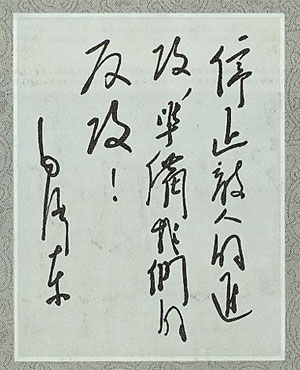 停止敌人的进
攻，準備我們的
反攻！
毛泽东